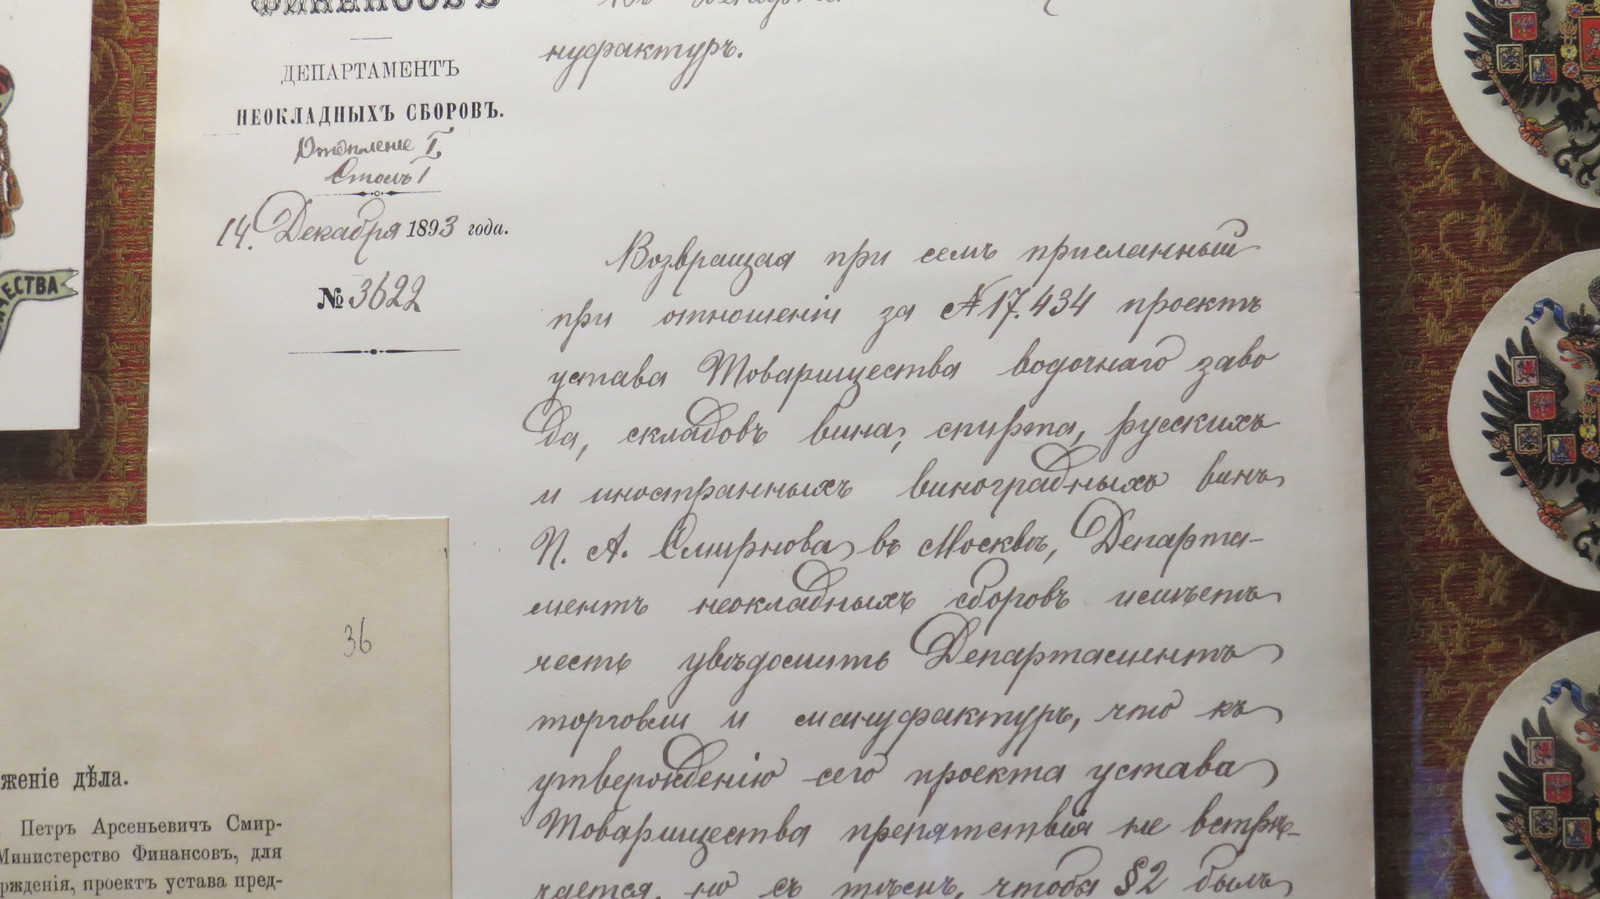 ФИНАНСОВЪ
ДЕПАРТАМЕНТЪ
НЕОКЛАДНЫХЪ СБОРОВЪ.
Отдѣленіе I,
Столъ I
14. Декабря 1893 года.
№ 3622
нуфактуръ.
Возвращая при семъ присланный
при отношеніи за № 17.434 проектъ
устава Товарищества водочнаго заво
да, складовъ вина, спирта, русскихъ
и иностранныхъ виноградныхъ винъ
П. А. Смирнова въ Москвѣ, Департа-
ментъ неокладныхъ сборовъ имѣетъ
честь увѣдомить Департаментъ
торговли и мануфактуръ, что къ
утвержденію сего проекта устава
Товарищества препятствія не встрѣ-
чается, но съ тѣмъ, чтобы §2 былъ
36
женіе дѣла.
Петръ Арсеньевичъ Смир-
Министерство Финансовъ, для
рждения, проектъ устава пред-
ЧЕСТВА